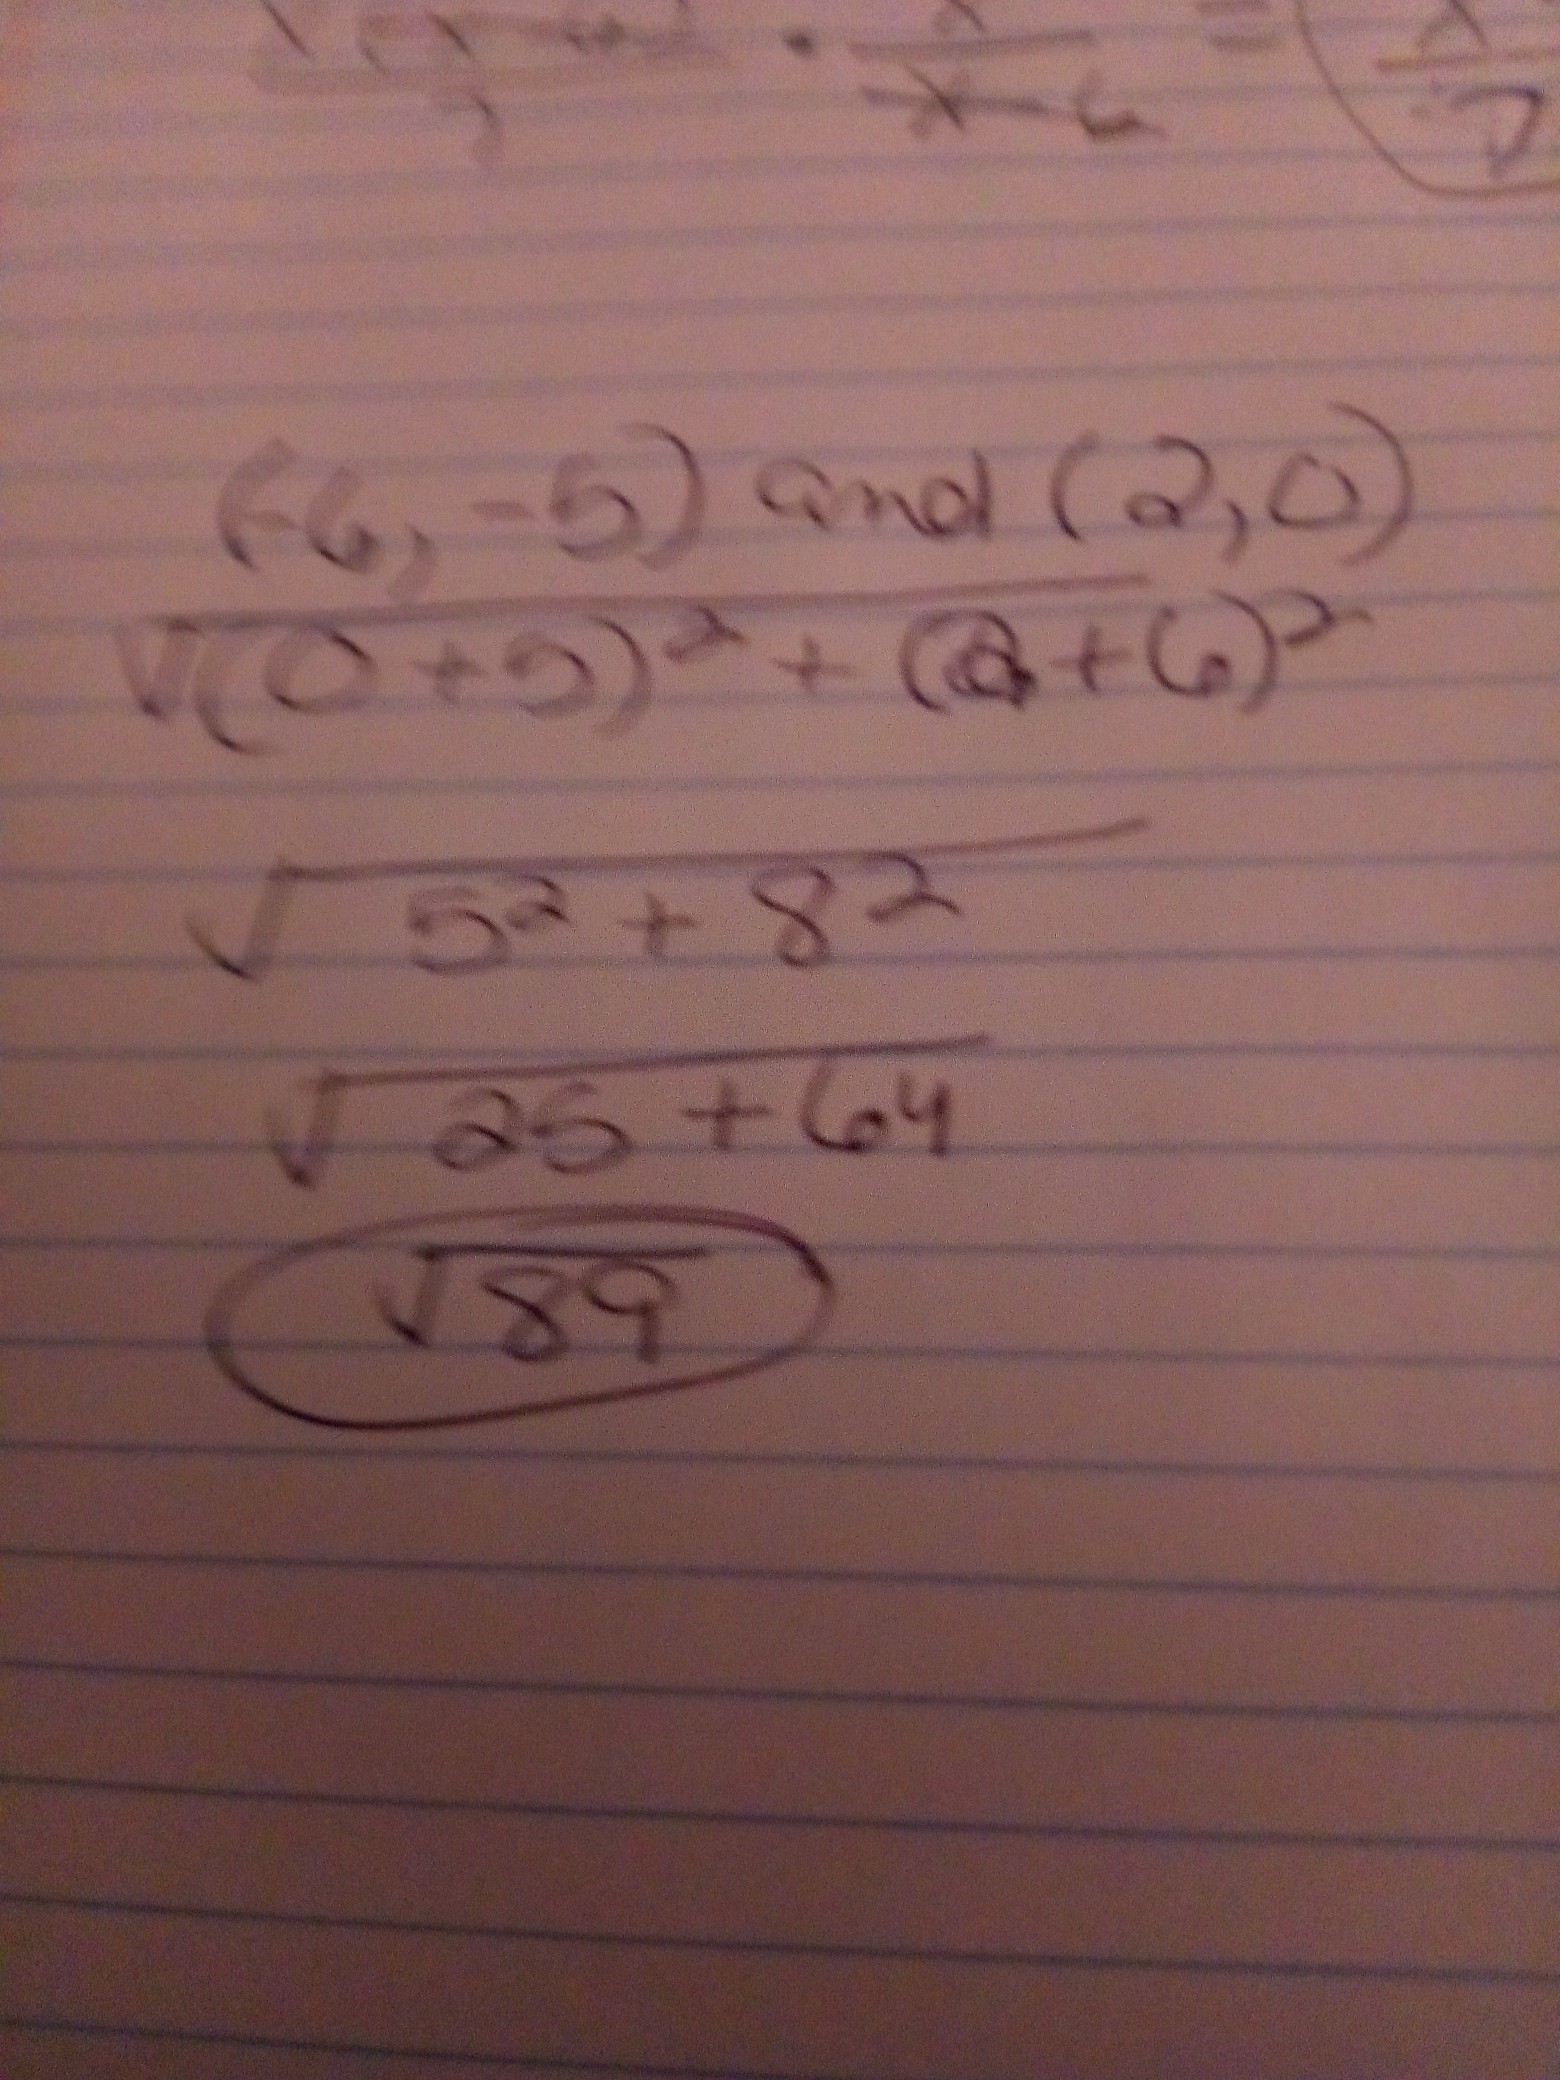 · x/x-6 = x/7
(-6, -5) and (2,0)
√(0+5)² + (2+6)²
√5² + 8²
√25 + 64
√89